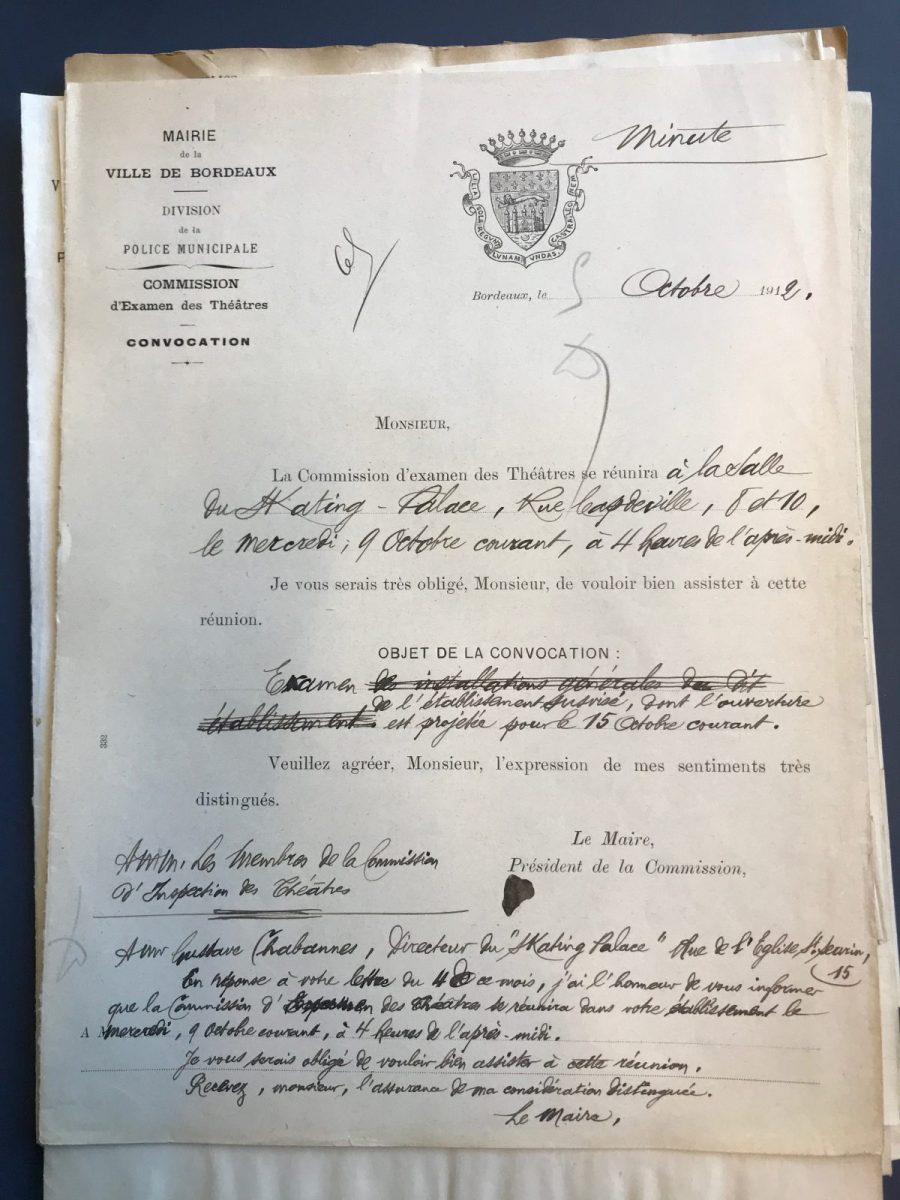 MAIRIE
de la
VILLE DE BORDEAUX
DIVISION
de la
POLICE MUNICIPALE
COMMISSION
d'Examen des Théâtres
CONVOCATION
Minute
LILIA SOLA REGUNT LVNAM VNDAS CASTRA LEONEM
Bordeaux, le 5 Octobre 1912.
MONSIEUR,
La Commission d'examen des Théâtres se réunira à la Salle
du Skating-Palace, Rue Capdeville, 8 et 10,
le mercredi, 9 Octobre courant, à 4 heures de l'après-midi.
Je vous serais très obligé, Monsieur, de vouloir bien assister à cette
réunion.
OBJET DE LA CONVOCATION :
Examen des installations générales du dit
de l'établissement susvisé, dont l'ouverture
établissement. est projetée pour le 15 Octobre courant.
332
Veuillez agréer, Monsieur, l'expression de mes sentiments très
distingués.
Le Maire,
Président de la Commission,
A MM. Les Membres de la Commission
d'Inspection des Théâtres
A Mr Gustave Chabannes, Directeur du "Skating Palace" Rue de l'Eglise St Seurin,
15
En réponse à votre lettre du 4 de ce mois, j'ai l'honneur de vous informer
que la Commission d' des Théâtres se réunira dans votre établissement le
A M
mercredi, 9 Octobre courant, à 4 heures de l'après-midi.
Je vous serais obligé de vouloir bien assister à cette réunion.
Recevez, monsieur, l'assurance de ma considération distinguée.
Le Maire,